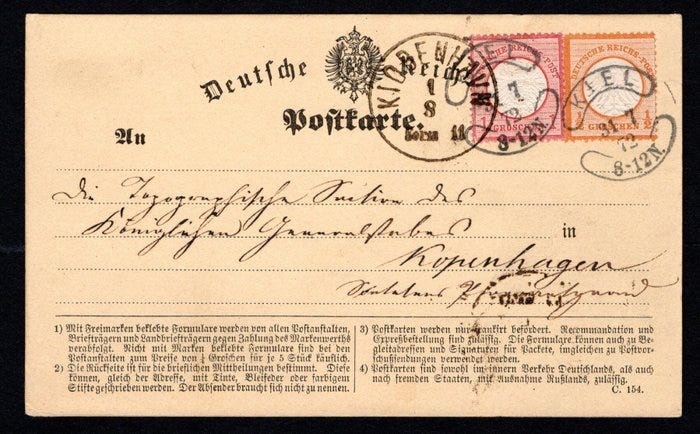 Deutsche Reich
Postkarte.
KJØBENHAVN
1
8
Form 11
DEUTSCHE REICHS-POST
1 GROSCHEN
KIEL
7
72
8-12N.
DEUTSCHE REICHS-POST
½ GROSCHEN ½
KIEL
31 7
72
8-12N.
An
die Topographische Section des
Königlichen Generalstabes
in
Kopenhagen
1) Mit Freimarken beklebte Formulare werden von allen Postanstalten,
Briefträgern und Landbriefträgern gegen Zahlung des Markenwerths
verabfolgt. Nicht mit Marken beklebte Formulare sind bei den
Postanstalten zum Preise von ¼ Groschen für je 5 Stück käuflich.
2) Die Rückseite ist für die brieflichen Mittheilungen bestimmt. Diese
können, gleich der Adresse, mit Tinte, Bleifeder oder farbigem
Stifte geschrieben werden. Der Absender braucht sich nicht zu nennen.
3) Postkarten werden nur frankirt befördert. Recommandation und
Expreßbestellung sind zulässig. Die Formulare können auch zu Be-
gleitadressen und Signaturen für Packete, imgleichen zu Postvor-
schußsendungen verwendet werden.
4) Postkarten sind sowohl im innern Verkehr Deutschlands, als auch
nach fremden Staaten, mit Ausnahme Rußlands, zulässig.
C. 154.